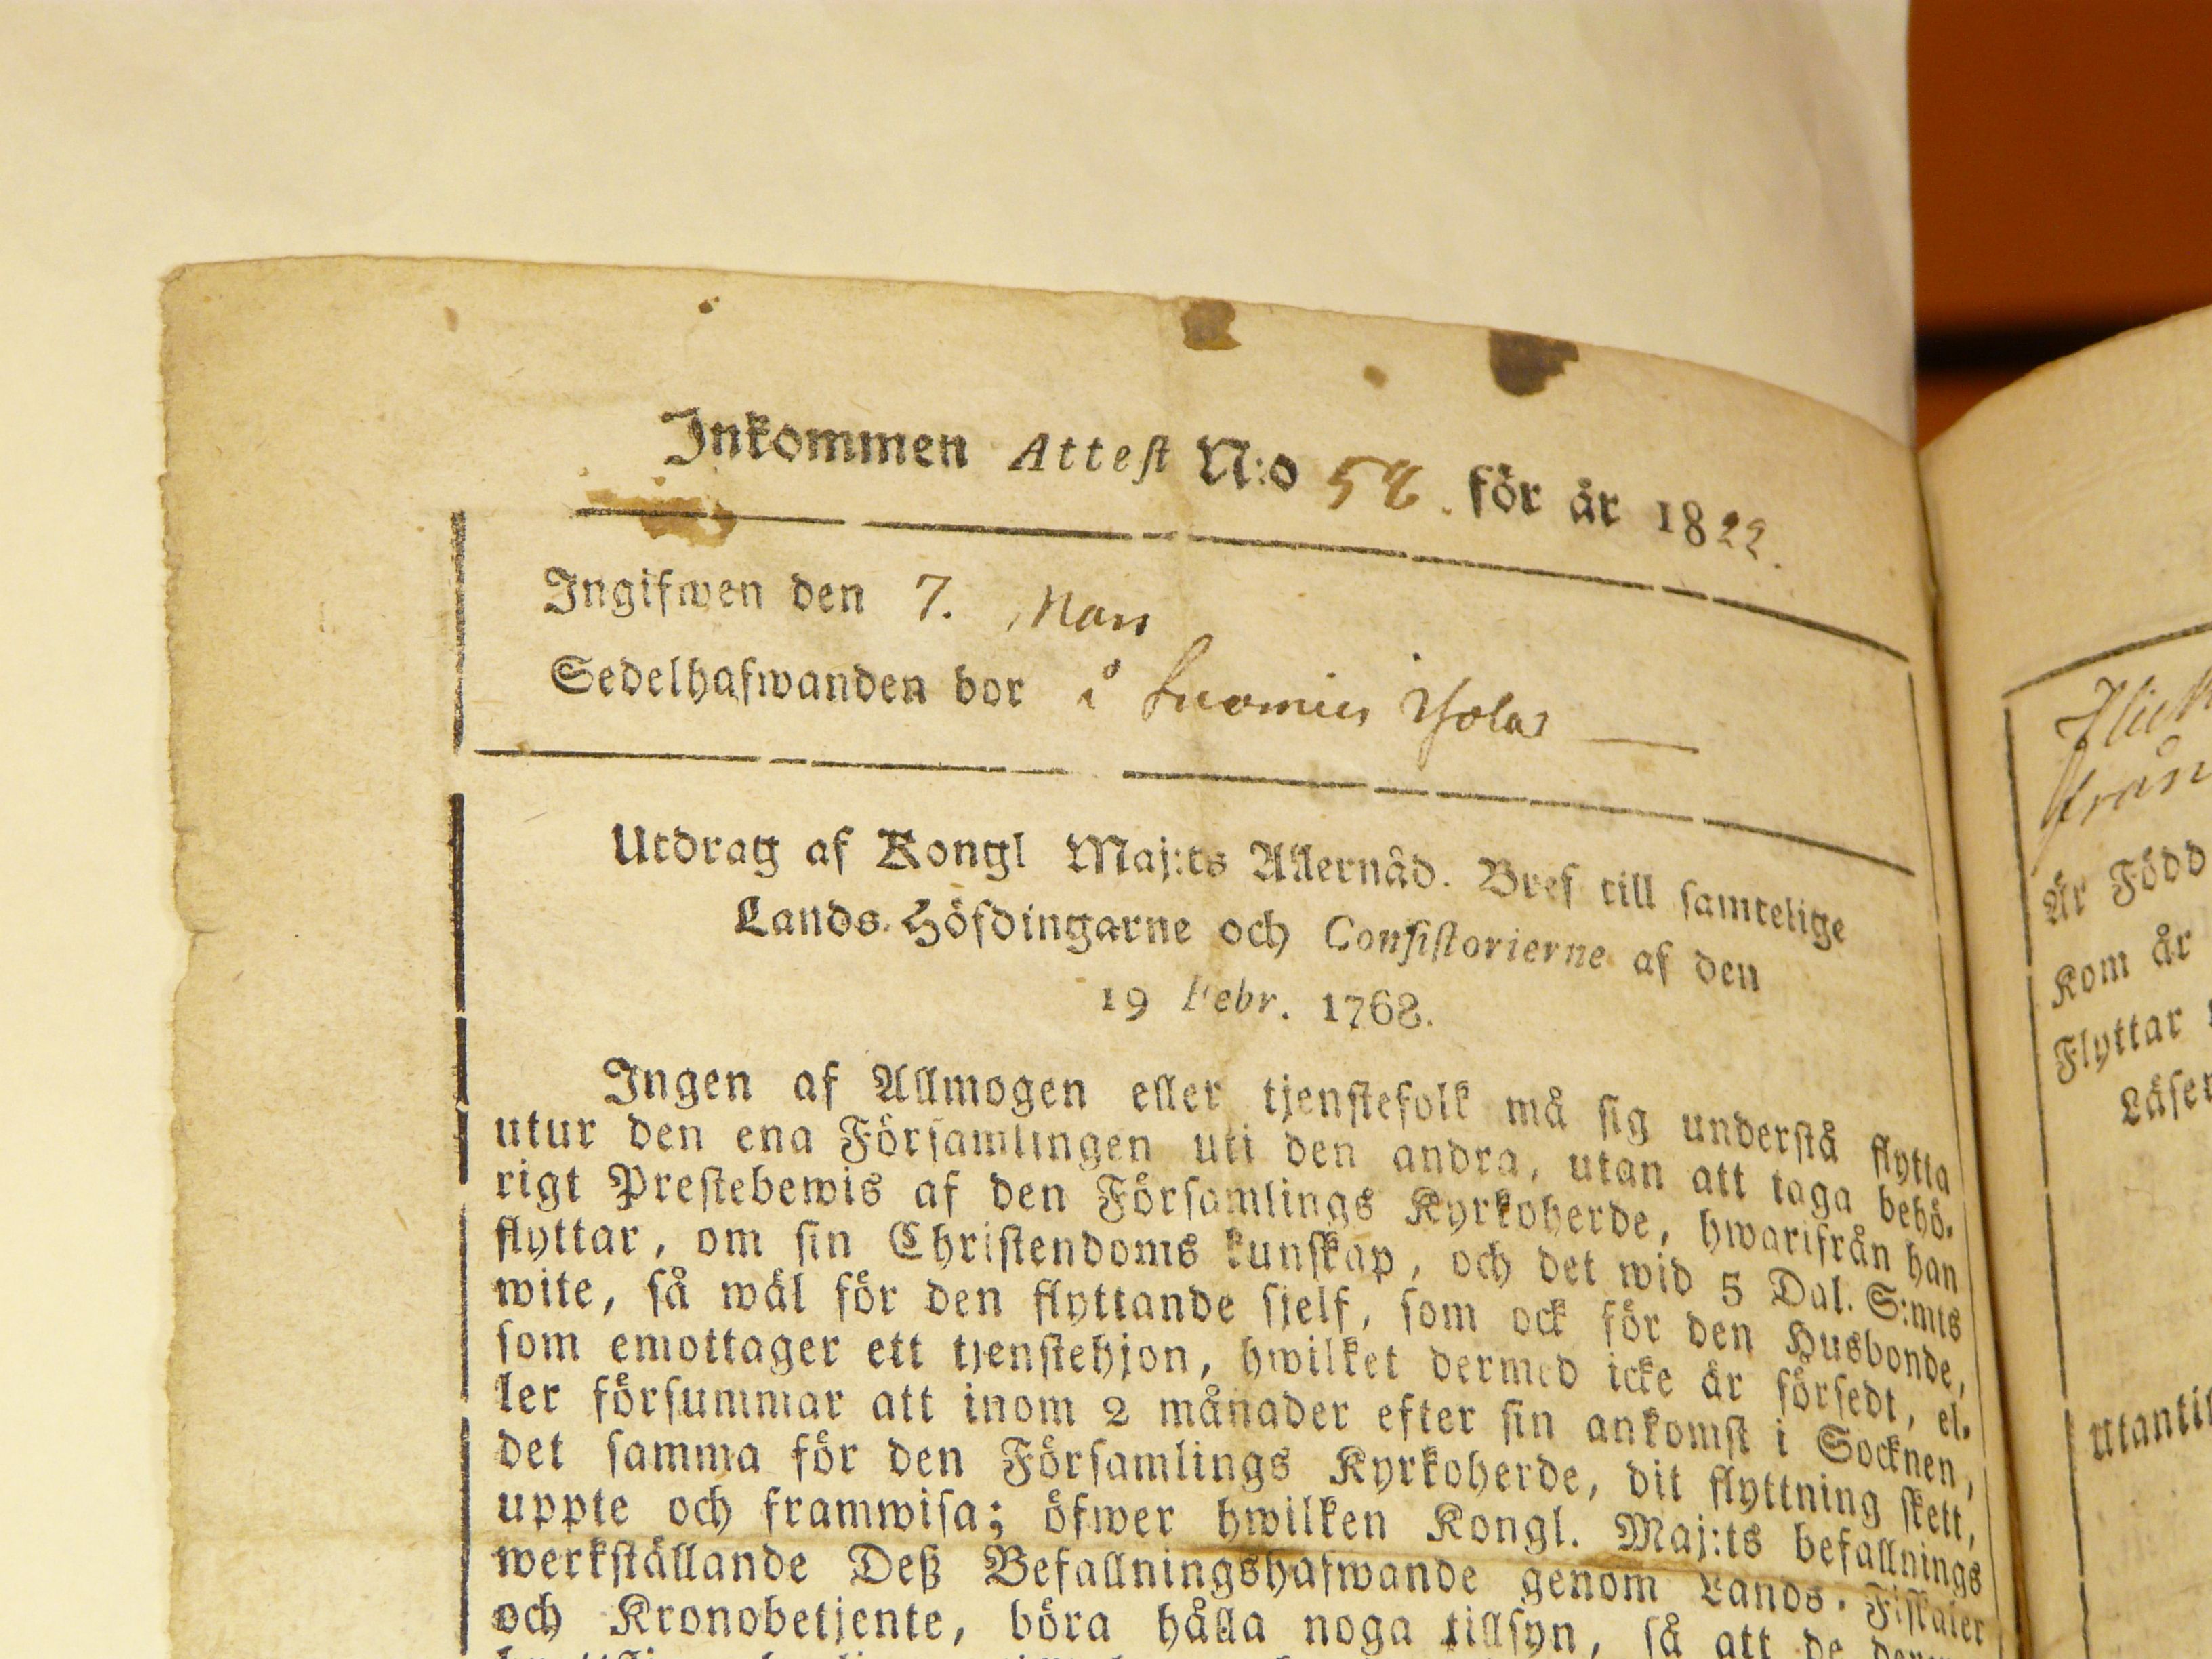 Inkommen Attest N:o 58. för år 1822.
Ingifwen den 7. Nov
Sedelhafwanden bor i
Utdrag af Kongl Maj:ts Allernåd. Bref till samtelige
Lands-Höfdingarne och Consistorierne af den
19 Febr. 1768.
Ingen af Allmogen eller tjenstefolk må sig understå flytta
utur den ena Församlingen uti den andra, utan att taga behö-
rigt Prestebewis af den Församlings Kyrkoherde, hwarifrån han
flyttar, om sin Christendoms kunskap, och det wid 5 Dal. S:mts
wite, så wäl för den flyttande sjelf, som ock för den Husbonde,
som emottager ett tjenstehjon, hwilket dermed icke är försedt, el-
ler försummar att inom 2 månader efter sin ankomst i Socknen,
det samma för den Församlings Kyrkoherde, dit flyttning skett,
uppte och framwisa; öfwer hwilken Kongl. Maj:ts befallnings
werkställande Deß Befallningshafwande genom Lands-Fiskaler
och Kronobetjente, böra hålla noga tillsyn, så att de
från
Är Född
Kom år
Flyttar
Läser
Utantil